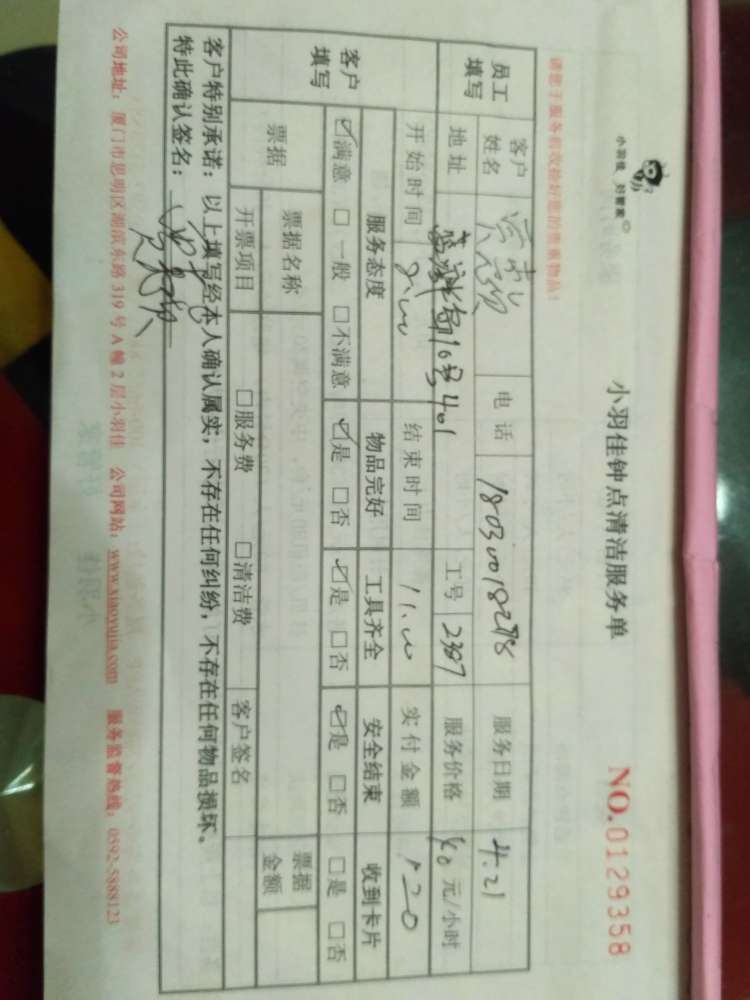 小羽佳 好管家
小羽佳钟点清洁服务单
NO.0129358
员工填写 客户姓名 电话 服务日期 4.21
地址 10号401 工号 2397 服务价格 40 元/小时
开始时间 8:00 结束时间 11:00 实付金额 120
客户填写 服务态度 物品完好 工具齐全 安全结束 收到卡片
☑满意 □一般 □不满意 ☑是 □否 ☑是 □否 ☑是 □否 □是 □否
票据 票据名称 票据金额
开票项目 □服务费 □清洁费 客户签名
客户特别承诺：以上填写经本人确认属实，不存在任何纠纷，不存在任何物品损坏。
特此确认签名：
公司地址：厦门市思明区湖滨东路 319 号 A 幢 2 层小羽佳 公司网站：www.xiaoyujia.com 服务监督热线：0592-5888123